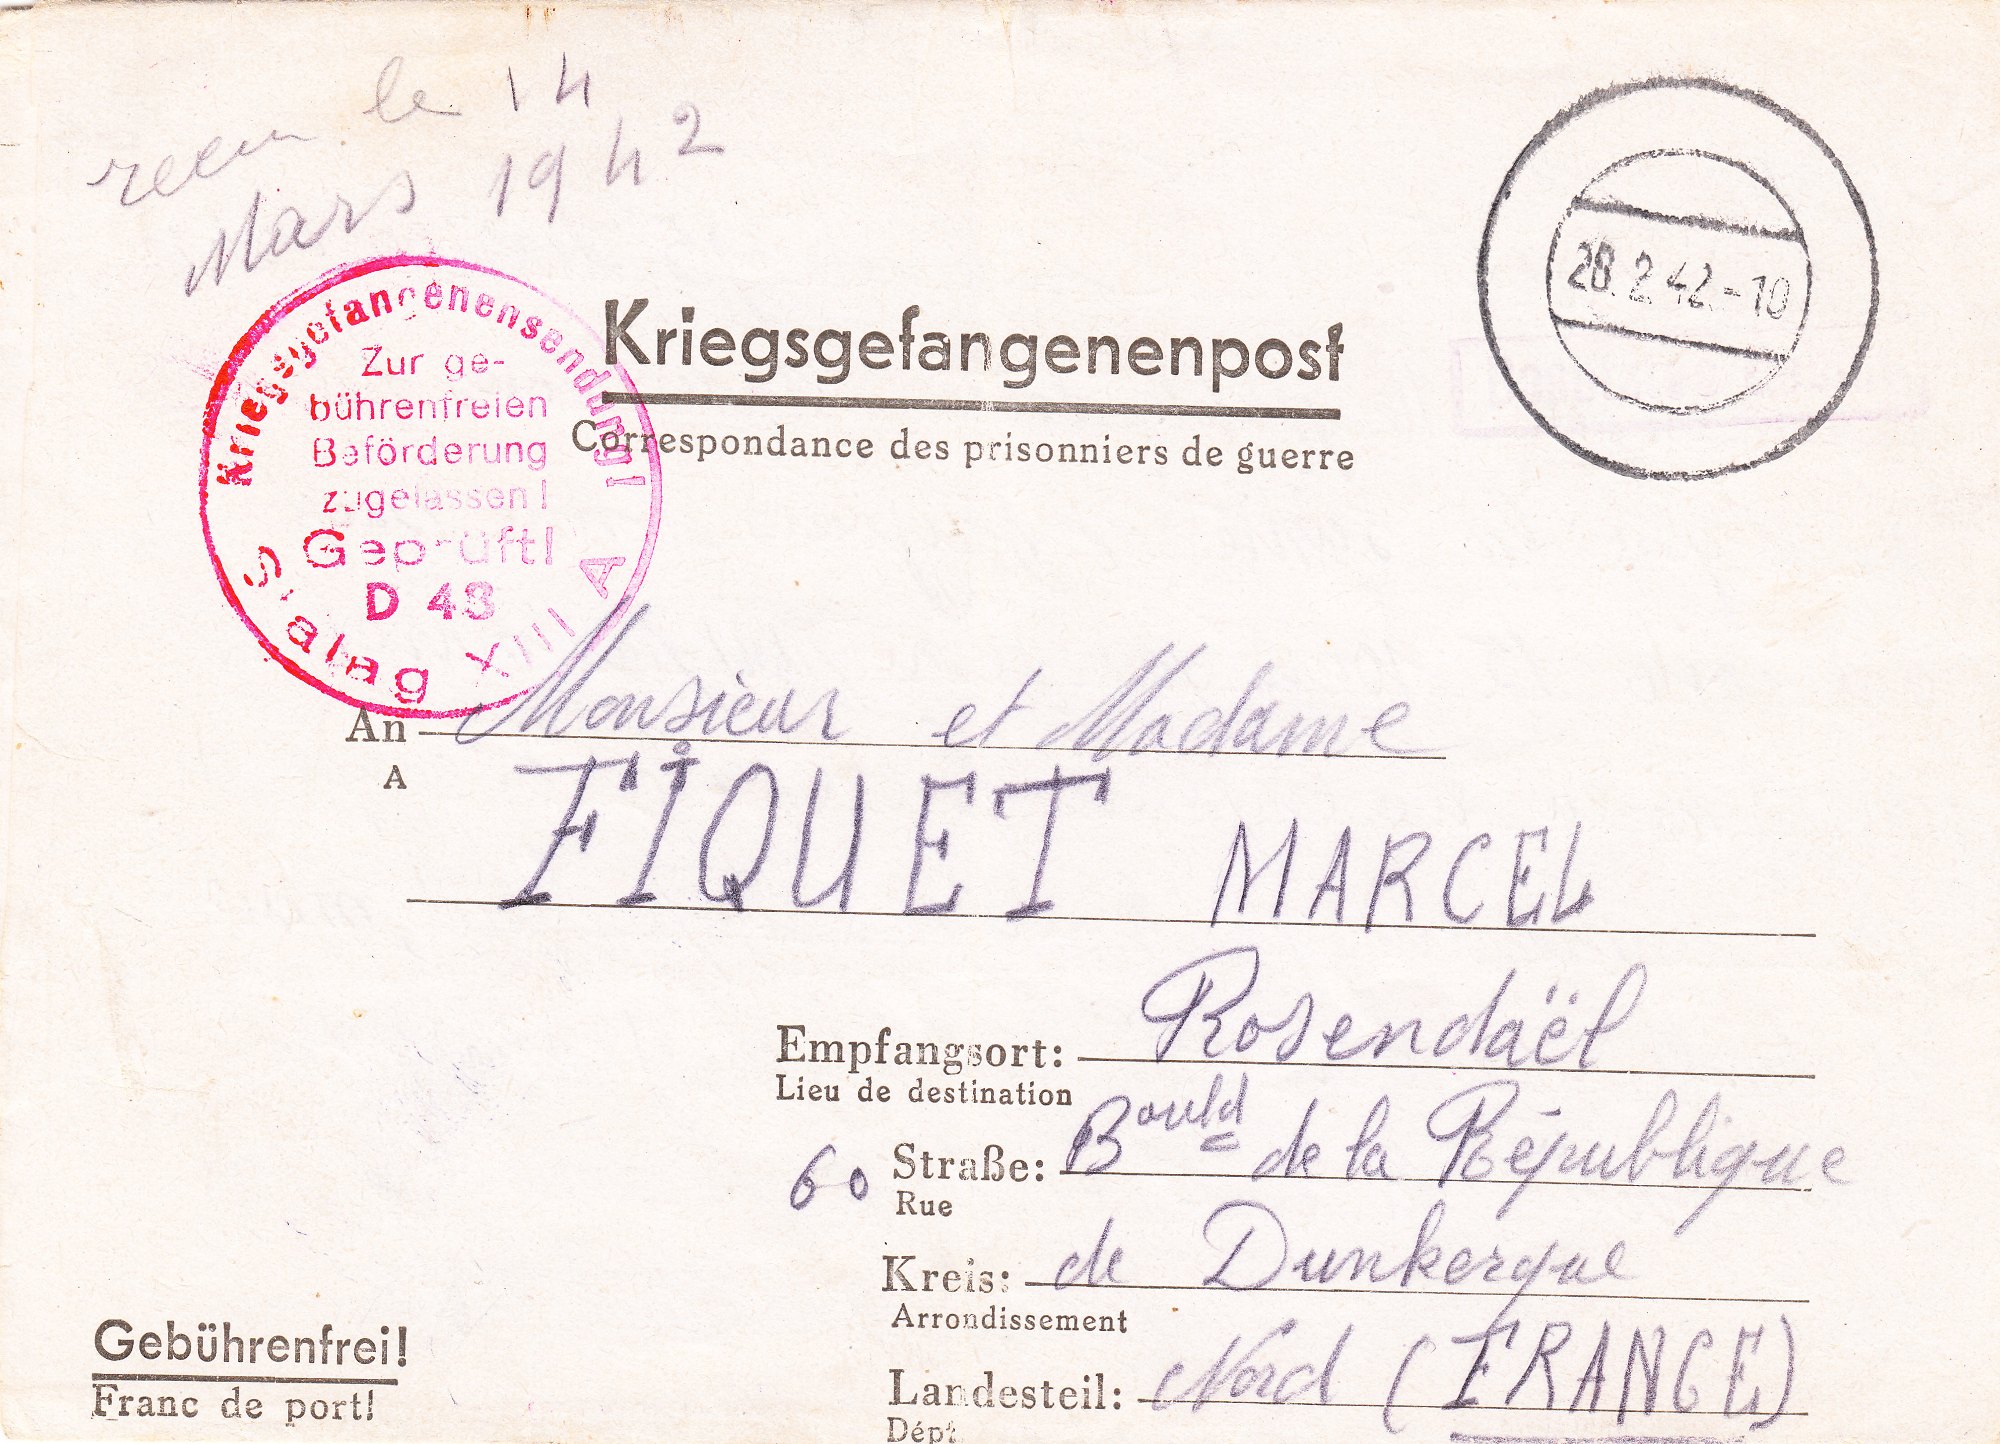 recu le 14
Mars 1942
28.2.42.-10
Kriegsgefangenensendung!
Zur ge-
bührenfreien
Beförderung
zugelassen!
Geprüft!
D 43
Stalag XIII A
Kriegsgefangenenpost
Correspondance des prisonniers de guerre
An Monsieur et Madame
A
FIQUET MARCEL
Empfangsort: Rosendaël
Lieu de destination
60 Straße: Bould de la République
Rue
Kreis: de Dunkerque
Arrondissement
Gebührenfrei!
Franc de port!
Landesteil: Nord (FRANCE)
Dépt.